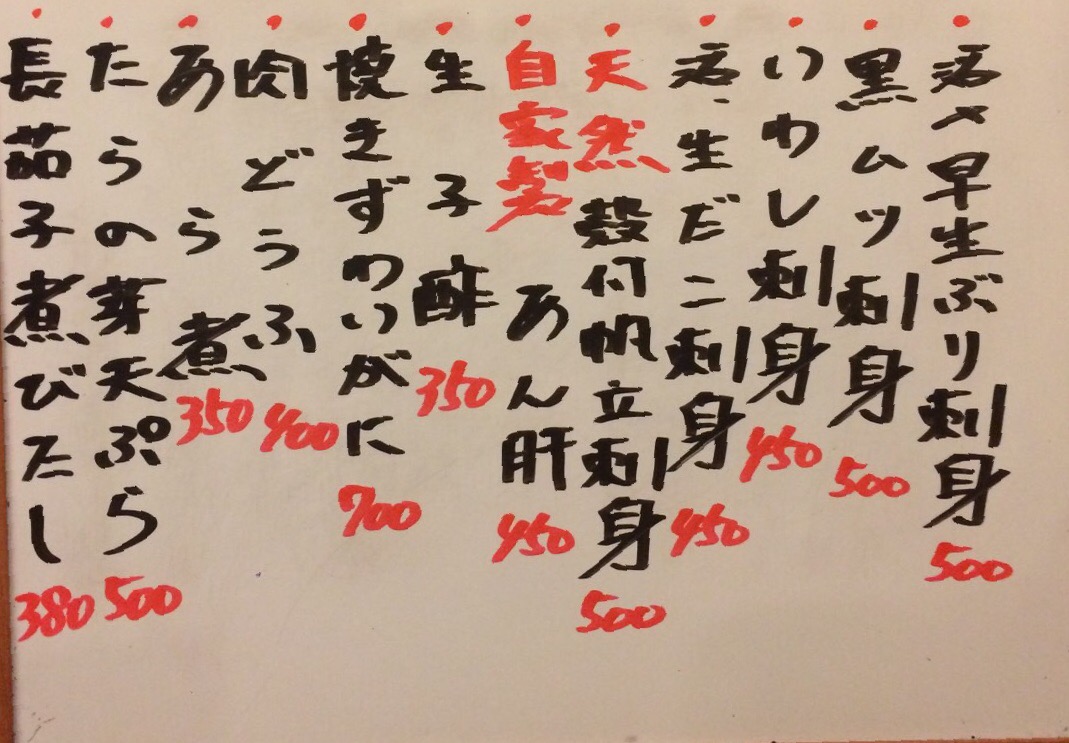 活〆早生ぶり刺身 500
黒ムツ刺身 500
いわし刺身 450
活・生だこ刺身 450
天然殻付帆立刺身 500
自家製あん肝 450
生子酢 350
焼きずわいがに 700
肉どうふ 400
あら煮 350
たらの芽天ぷら 500
長茄子煮びたし 380